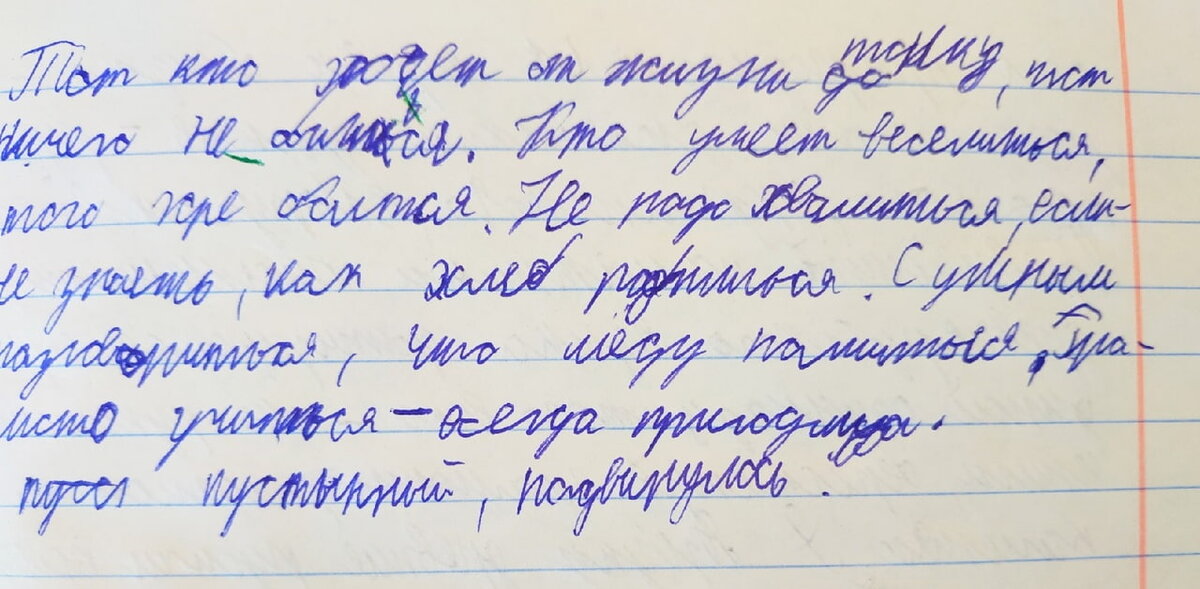 Тот кто ходет от жизни до толку, тот
ничего не боится. Кто умеет веселиться,
того хре боится. Не надо хвалиться, если
не знаеть, как хлеб родиться. С умным
разговориться, что мёду напиться. Гра-
мсто учиться – всегда пригодица.
пуст пустынный, надвинулось.